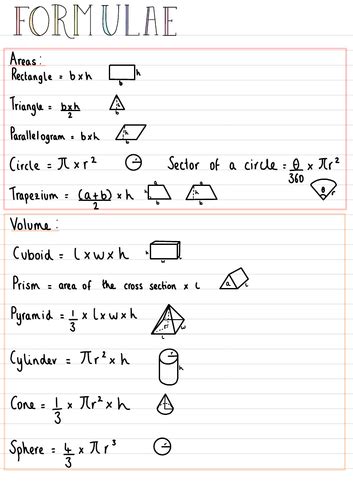 FORMULAE
Areas:
Rectangle = b x h
h
b
Triangle = b x h / 2
h
b
Parallelogram = b x h
h
b
Circle = π x r²
r
Sector of a circle = θ/360 x πr²
θ r
Trapezium = (a + b)/2 x h
a
h
b
a
h
b
Volume:
Cuboid = l x w x h
h
l
w
Prism = area of the cross section x L
A
L
Pyramid = 1/3 x l x w x h
h
w
L
Cylinder = πr² x h
r
h
Cone = 1/3 x πr² x h
Sphere = 4/3 x πr³
r